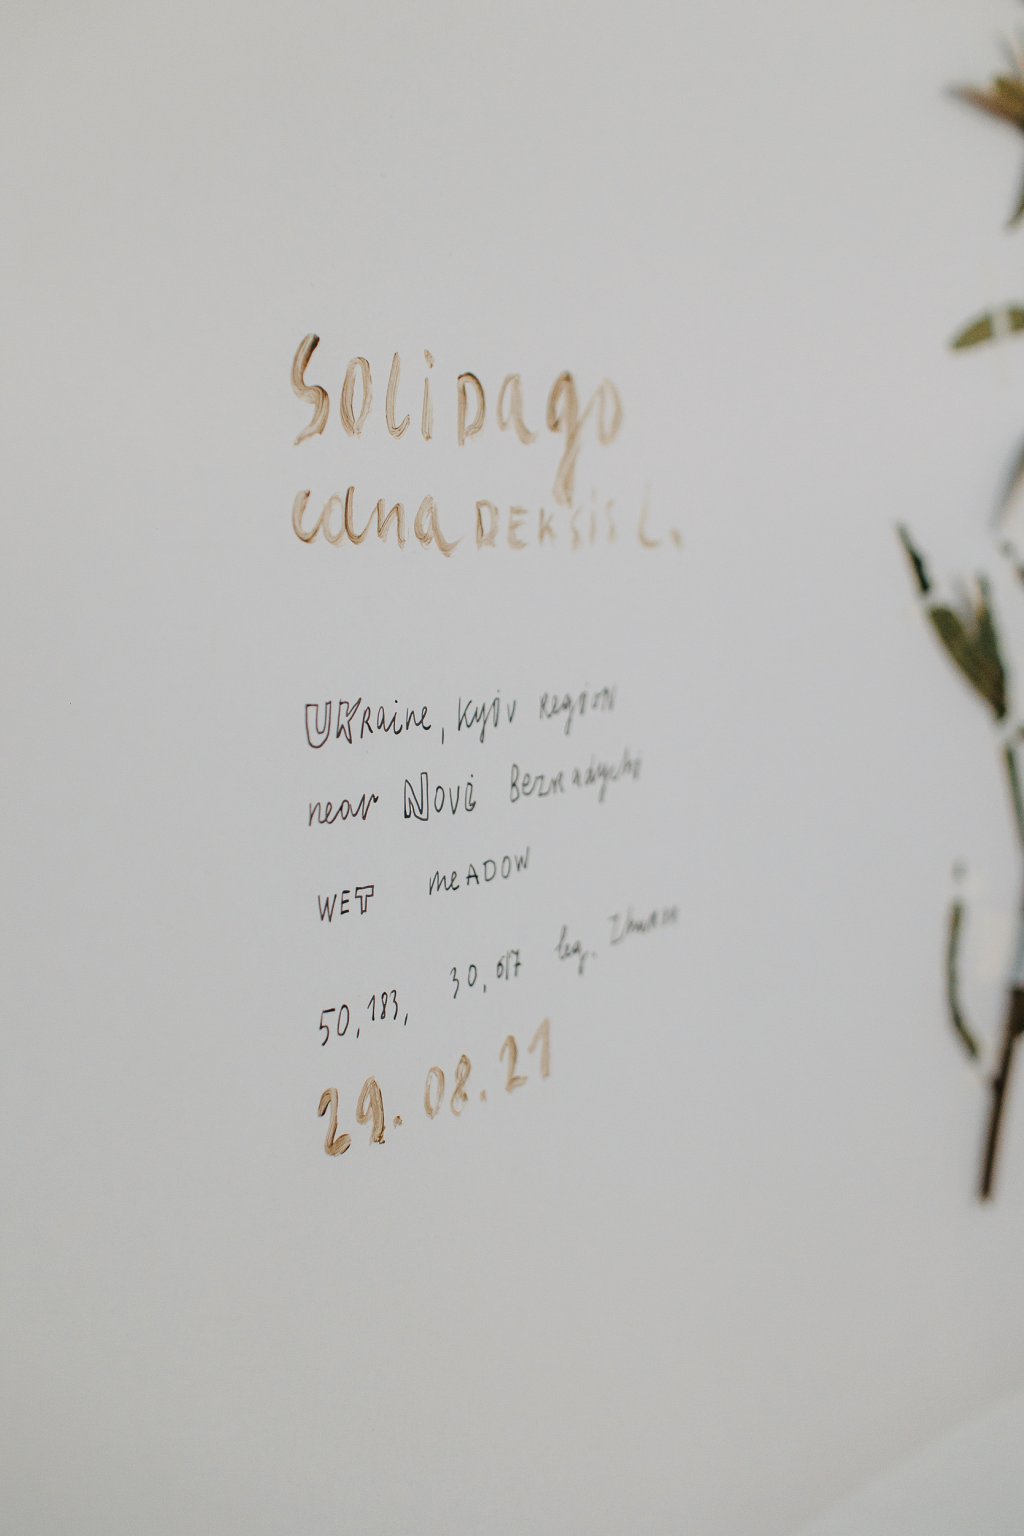 Solidago
canadeksis L.
Ukraine, Kyiv region
near Novi Bezradychi
WET meADOW
50,183, 30,617 leg.
29.08.21